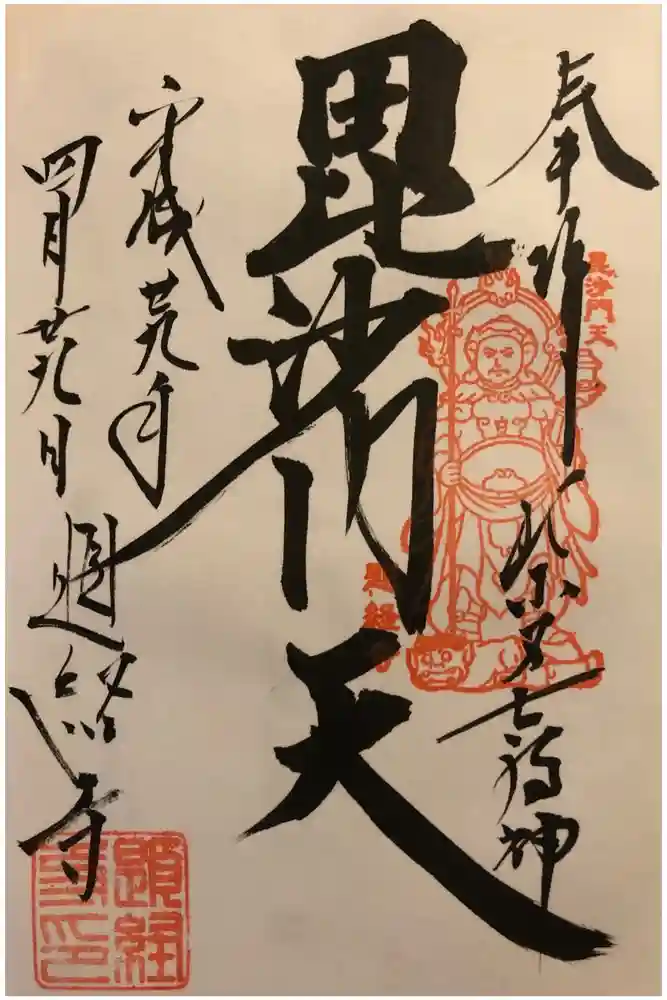 奉拝 柴又七福神
毘沙門天
平成廿九年
四月廿九日 題経寺
毘沙門天
題経寺
題経寺印